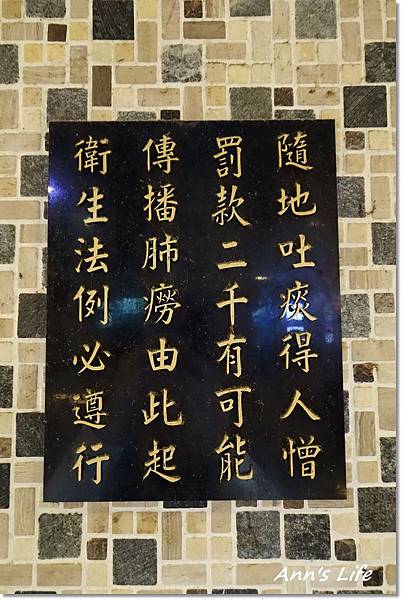 隨地吐痰得人憎
罰款二千有可能
傳播肺癆由此起
衛生法例必遵行
Ann's Life
Ann's Life